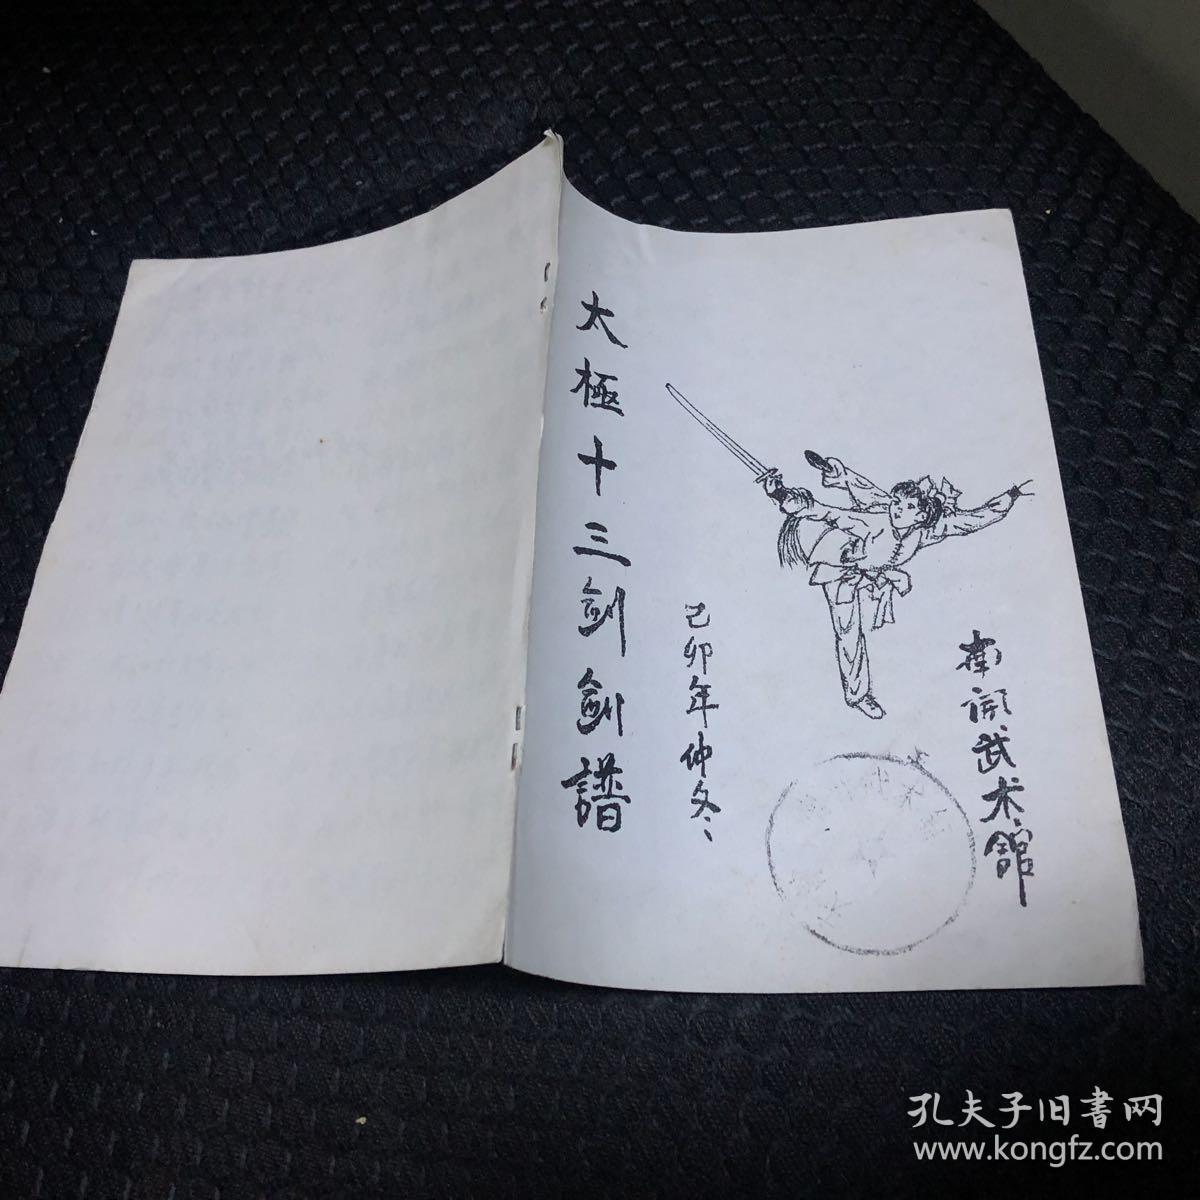 太極十三劍劍譜
己卯年仲冬
南開武术館
孔夫子旧書网
www.kongfz.com